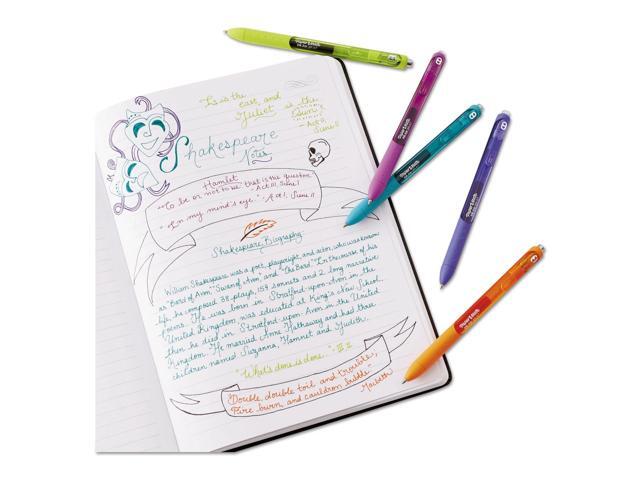 It is the
east, and
Juliet is the
sun
- Act II,
Scene II
Shakespeare
Notes
Hamlet
"To be or not to be that is the question"
- Act III, Scene I
"In my mind's eye." - Act I, Scene II
Shakespeare Biography:
William Shakespeare was a poet, playwright, and actor, who was known
as "Bard of Avon," "Swan of Avon," and "The Bard." In the course of his
life, he composed 38 plays, 154 sonnets and 2 long narrative
poems. He was born in Stratford-upon-Avon in the
United Kingdom, was educated at King's New School,
then he died in Stratford-upon-Avon in the United
Kingdom. He married Anne Hathaway and had three
children named Suzanna, Hamnet and Judith.
"What's done is done." - III II
"Double, double toil and trouble,
Fire burn, and cauldron bubble"
Macbeth
Paper Mate
Paper Mate
Paper Mate
Paper Mate
Paper Mate